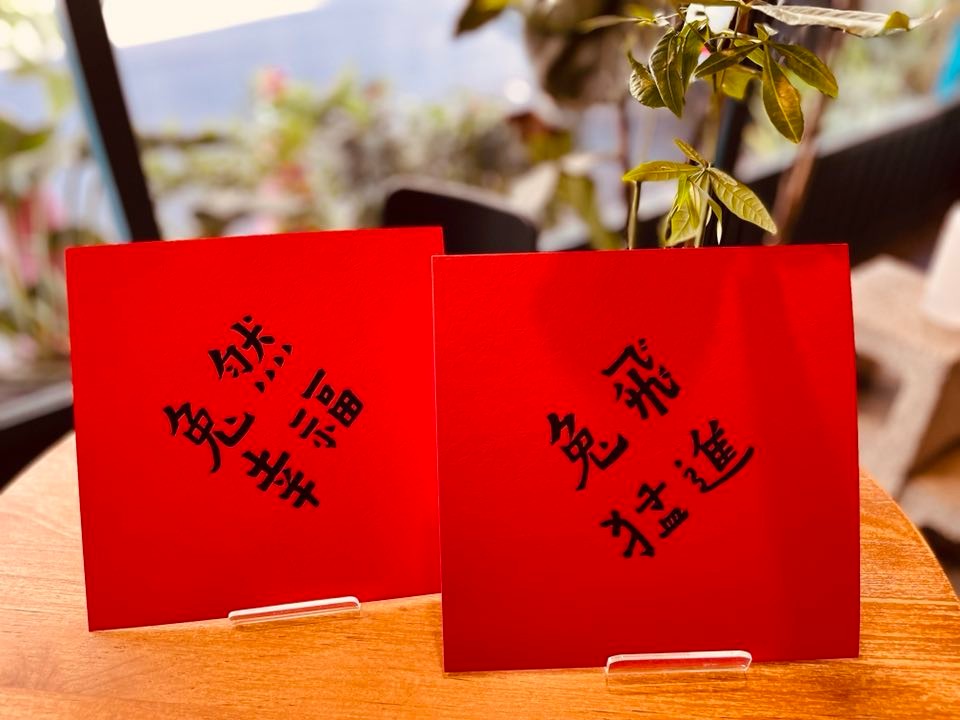 兔然
幸福
兔飛
猛進